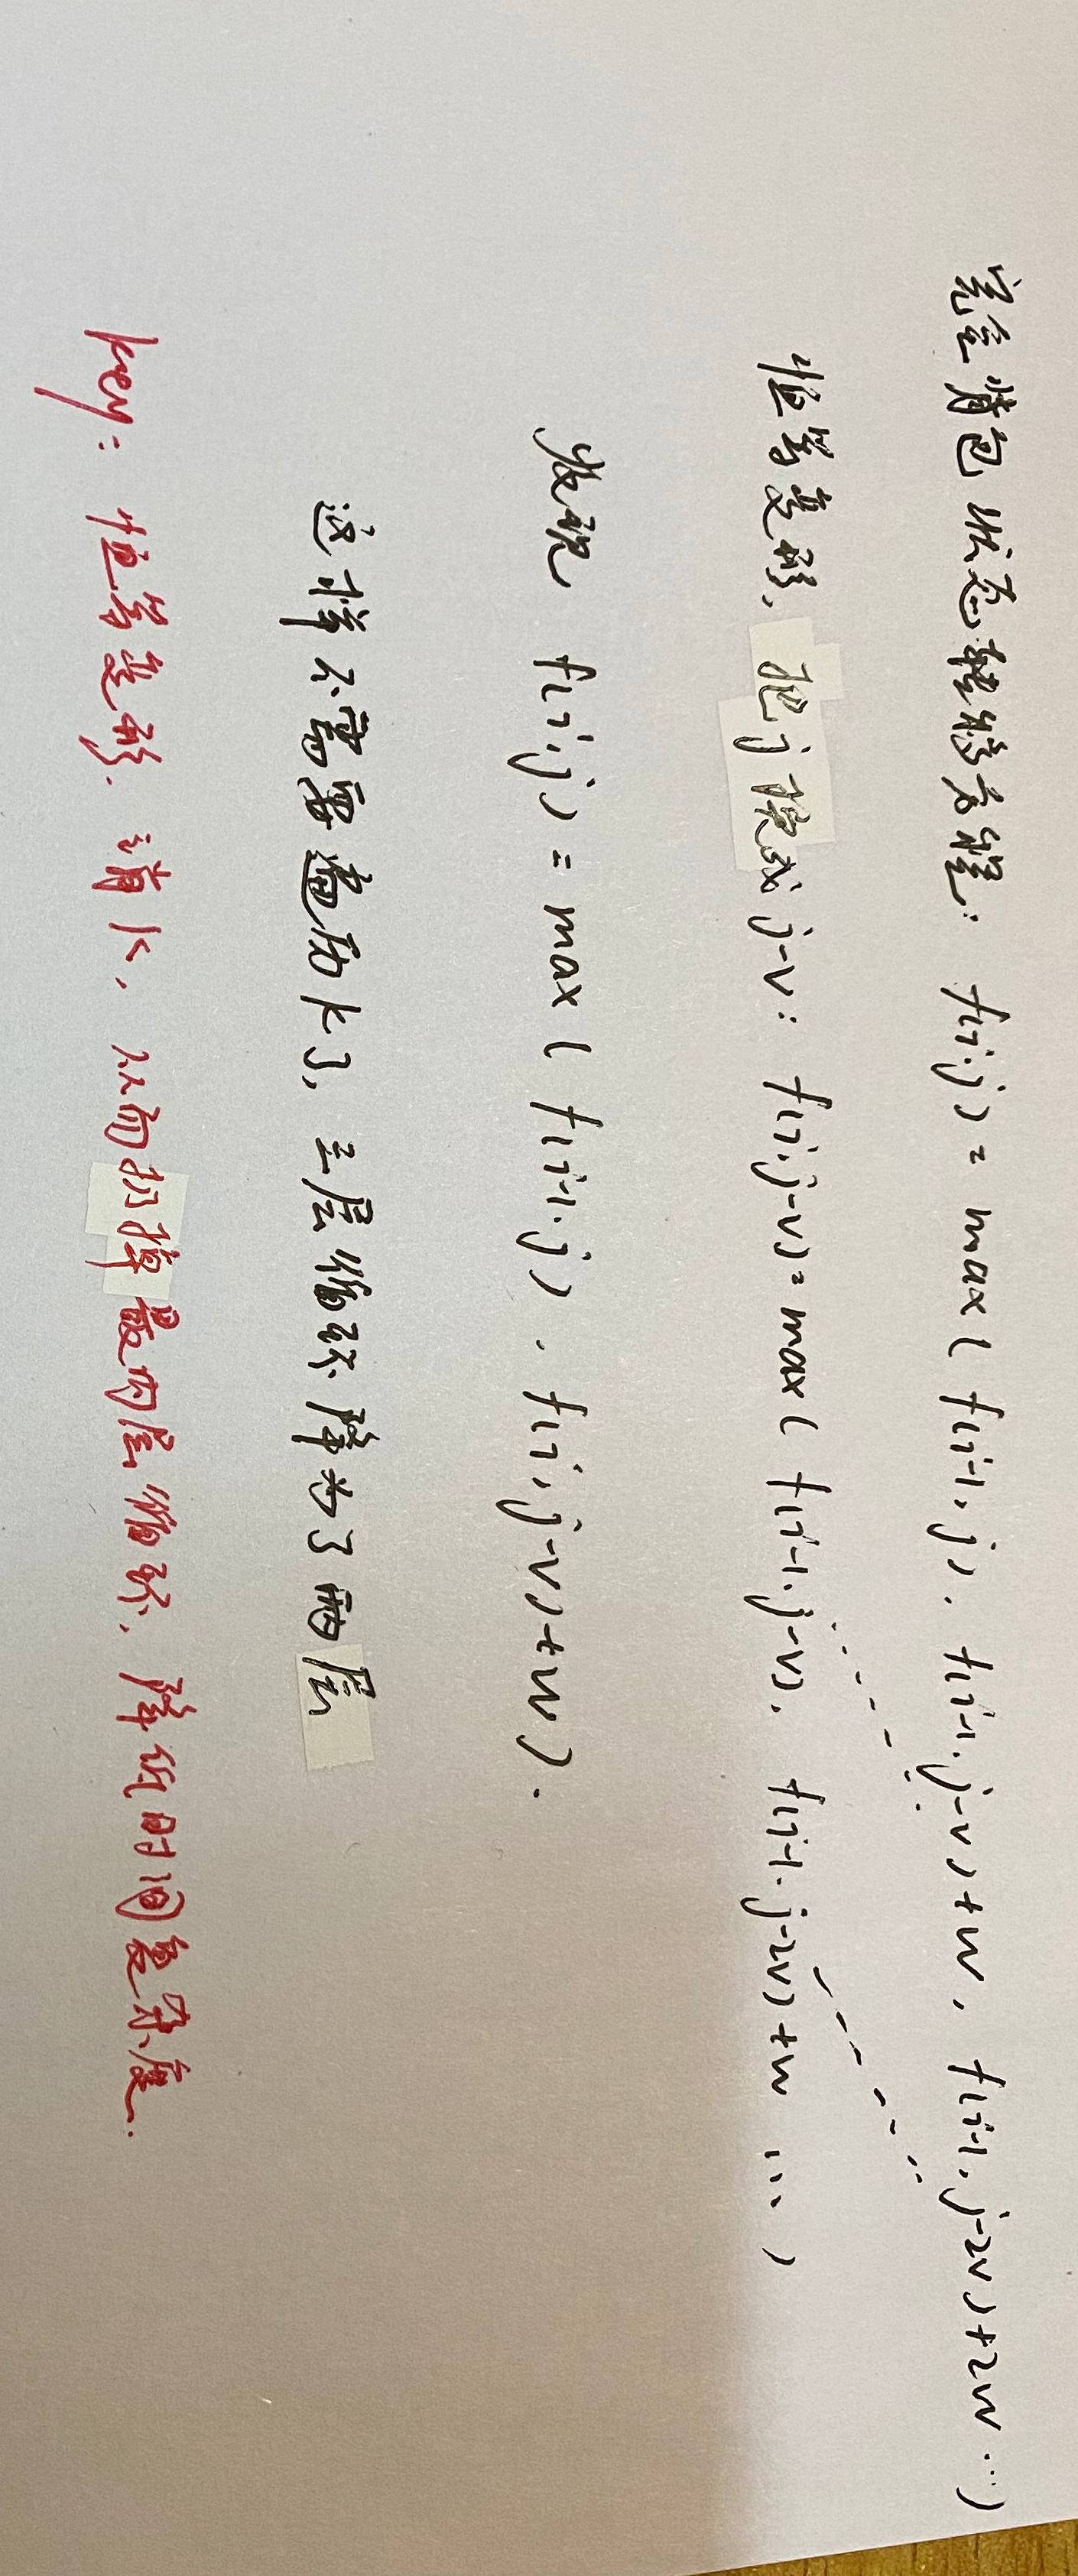 完全背包状态转移方程: f(i,j) = max( f(i-1, j), f(i-1, j-v)+w, f(i-1, j-2v)+2w …)
恒等变形, 把j换成 j-v: f(i,j-v)= max( f(i-1, j-v), f(i-1, j-2v)+w … )
发现 f(i,j) = max( f(i-1, j), f(i, j-v)+w ).
这样不需要遍历k了, 三层循环降为了两层
key: 恒等变形, 消k, 从而扔掉最内层循环, 降低时间复杂度.